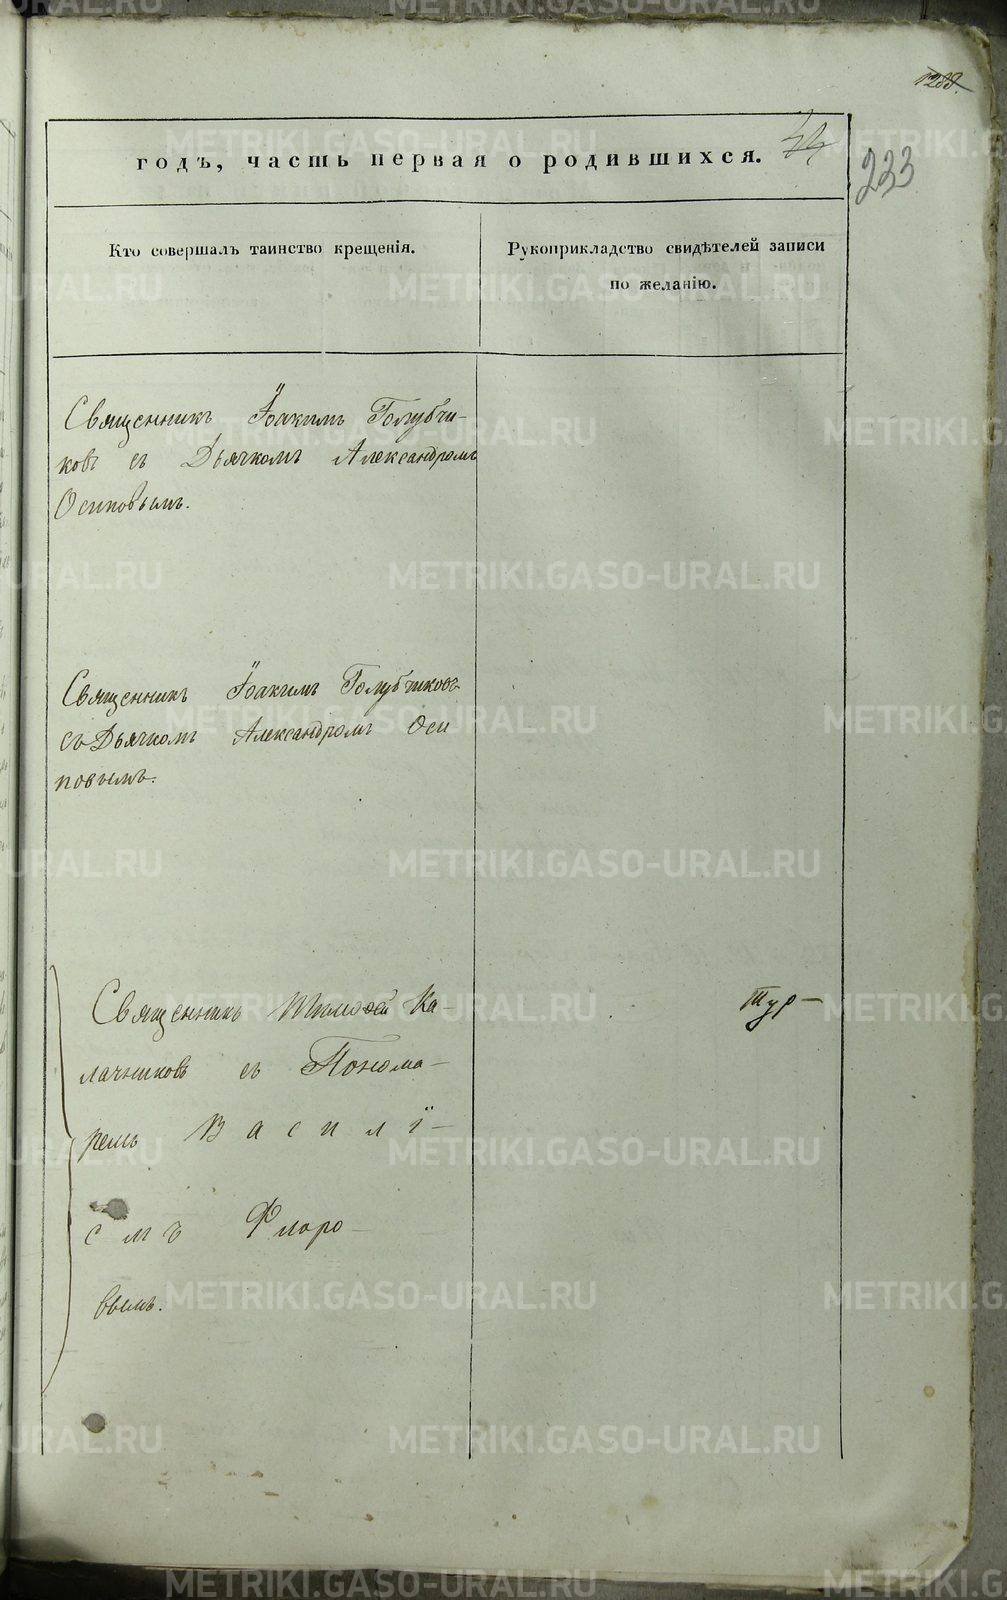 годъ, часть первая о родившихся.
233
Кто совершалъ таинство крещенія.
Рукоприкладство свидѣтелей записи
по желанію.
Священникъ Іоакимъ Голубчи-
ковъ съ Дьячкомъ Александромъ
Осиповымъ.
Священникъ Іоакимъ Голубчиковъ
съ Дьячкомъ Александромъ Оси
повымъ.
Священникъ Тимофей Ка-
лачниковъ съ Понома-
ремъ Василі-
емъ Флоро-
вымъ.
Тур-
METRIKI.GASO-URAL.RU